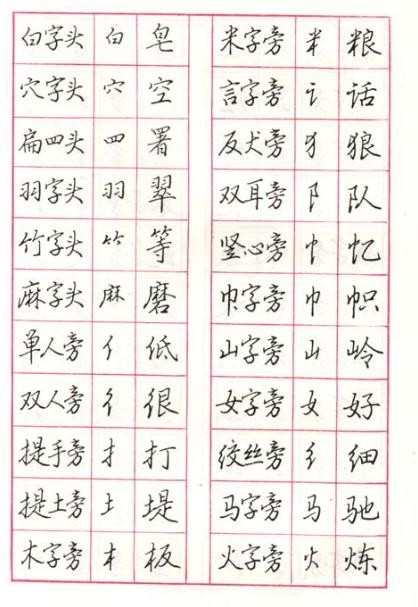 白字头 白 皂
穴字头 穴 空
扁四头 罒 署
羽字头 羽 翠
竹字头 𥫗 等
麻字头 麻 磨
单人旁 亻 低
双人旁 彳 很
提手旁 扌 打
提土旁 土 堤
木字旁 木 板
米字旁 米 粮
言字旁 讠 话
反犬旁 犭 狼
双耳旁 阝 队
竖心旁 忄 忆
巾字旁 巾 帜
山字旁 山 岭
女字旁 女 好
绞丝旁 纟 细
马字旁 马 驰
火字旁 火 炼